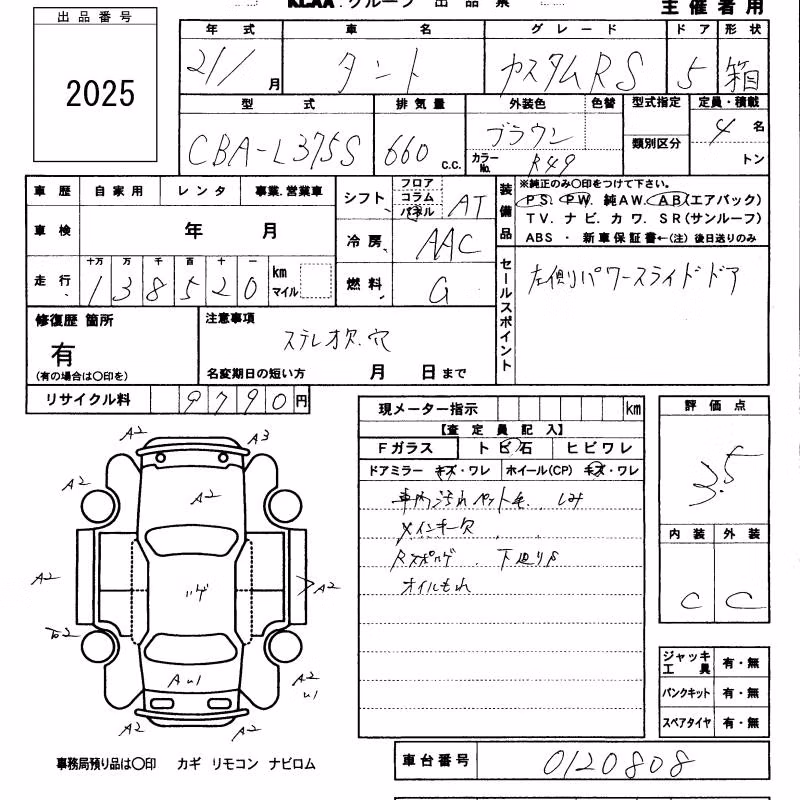 KLAA.グループ 出品票
主催者用
出品番号
2025
年式 車名 グレード ドア 形状
21/ 月 タント カスタムRS 5 箱
型式 排気量 外装色 色替 型式指定 定員・積載
CBA-L375S 660 c.c. ブラウン 類別区分 4 名
カラーNo. R49 トン
車歴 自家用 レンタ 事業.営業車
車検 年 月
走行 十万 万 千 百 十 一
138520 km マイル
シフト フロア コラム パネル AT
冷房 AAC
燃料 G
装備品
※純正のみ〇印をつけて下さい。
PS. PW. 純AW. AB(エアバック)
TV. ナビ. カワ. SR(サンルーフ)
ABS ・ 新車保証書←(注) 後日送りのみ
セールスポイント
左側パワースライドドア
修復歴 箇所
有
(有の場合は〇印を)
注意事項
ステレオ欠.穴
名変期日の短い方 月 日まで
リサイクル料 9790円
現メーター指示 km
【査定員記入】
Fガラス トビ石 ヒビワレ
ドアミラー キズ・ワレ ホイール(CP) キズ・ワレ
車内汚れ ペット毛. しみ
メインキー欠
下廻りS
オイルもれ
評価点
3.5
内装 外装
C C
ジャッキ工具 有・無
パンクキット 有・無
スペアタイヤ 有・無
A2 A3
A2
A2
A2 A2
ハゲ
A2
AU1 A2
U1
A2 A2
事務局預り品は〇印 カギ リモコン ナビロム
車台番号 0120808